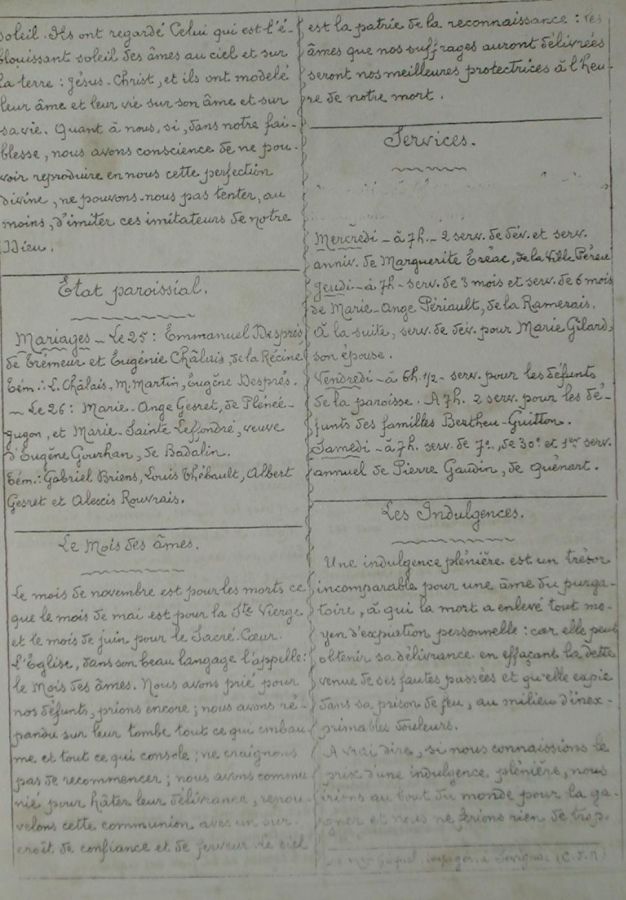 soleil. Ils ont regardé Celui qui est l'é-
blouissant soleil des âmes au ciel et sur
la terre : Jésus-Christ, et ils ont modelé
leur âme et leur vie sur son âme et sur
sa vie. Quant à nous, si, dans notre fai-
blesse, nous avons conscience de ne pou-
voir reproduire en nous cette perfection
divine, ne pouvons-nous pas tenter, au
moins, d'imiter ces imitateurs de notre
Dieu.
Etat paroissial.
Mariages - Le 25 : Emmanuel Després
de Trémeur et Eugénie Châlais, de la Récine
Tém. : L. Châlais, M. Martin, Eugène Després.
- Le 26 : Marie-Ange Gesret, de Plénée-
Jugon, et Marie-Sainte Leffondré, veuve
d'Eugène Gourhan, de Badalin.
Tém. : Gabriel Briens, Louis Thébault, Albert
Gesret et Alexis Rouvrais.
Le Mois des âmes.
Le mois de novembre est pour les morts ce
que le mois de mai est pour la Ste Vierge
et le mois de juin pour le Sacré-Cœur.
L'Église, dans son beau langage l'appelle :
le Mois des âmes. Nous avons prié pour
nos défunts, prions encore ; nous avons ré-
pandu sur leur tombe tout ce qui embau
me et tout ce qui console ; ne craignons
pas de recommencer ; nous avons commu
nié pour hâter leur délivrance, renou-
velons cette communion avec un sur-
croît de confiance et de ferveur. Le ciel
est la patrie de la reconnaissance : les
âmes que nos suffrages auront délivrées
seront nos meilleures protectrices à l'heu-
re de notre mort.
Services.
Mercredi - à 7h. - 2 serv. de dév. et serv.
anniv. de Marguerite Eréac, de la Ville Péreu
Jeudi - à 7h - serv. de 3 mois et serv. de 6 mois
de Marie-Ange Périault, de la Ramerais.
A la suite, serv. de dév. pour Marie Gilard,
son épouse.
Vendredi - à 6h. 1/2 - serv. pour les défunts
de la paroisse. A 7h. 2 serv. pour les dé-
funts des familles Bertheu-Guitton.
Samedi - à 7h. serv. de 7e, de 30e et 1er serv.
annuel de Pierre Gaudin, de Quénart.
Les Indulgences.
Une indulgence plénière est un trésor
incomparable pour une âme du purga-
toire, à qui la mort a enlevé tout mo-
yen d'expiation personnelle : car elle peut
obtenir sa délivrance en effaçant la dette
venue de ses fautes passées et qu'elle expie
dans sa prison de feu, au milieu d'inex-
primables douleurs.
A vrai dire, si nous connaissions le
prix d'une indulgence plénière, nous
irions au bout du monde pour la ga-
gner et nous ne ferions rien de trop.